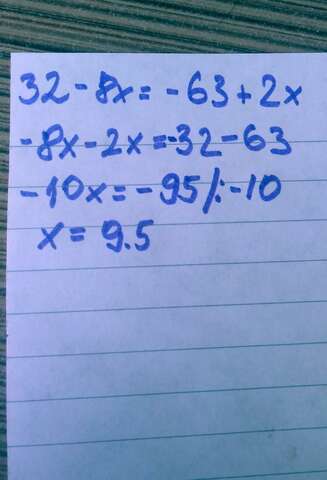 32 - 8x = - 63 + 2x
- 8x - 2x = -32 - 63
- 10x = - 95 /: -10
x = 9.5